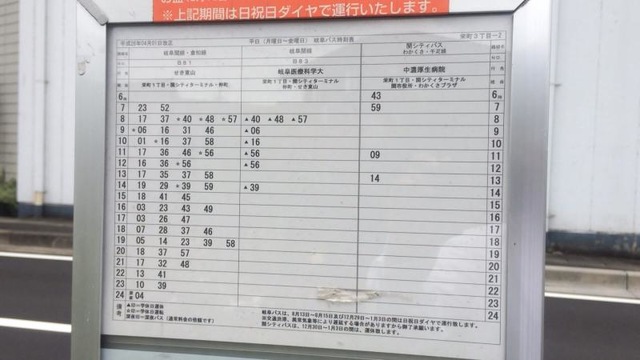 ※上記期間は日祝日ダイヤで運行いたします。
平日(月曜日~金曜日) 岐阜バス時刻表
栄町3丁目-2
岐阜関線・倉知線
岐阜関線
関シティバス
わかくさ・千疋線
G81
G83
せき東山
岐阜医療科学大
中濃厚生病院
栄町1丁目・関シティターミナル
栄町1丁目・関シティターミナル・仲町
仲町・せき東山
関市役所・わかくさプラザ
6 43 6
7 23 52 59 7
8 17 37 ★40 ★48 ★57 ▲40 ▲48 ▲57 8
9 ★06 16 31 46 ▲06 9
10 01 ★16 37 58 ▲16 10
11 17 36 46 ★56 ▲56 09 11
12 16 36 ★56 ▲56 12
13 17 35 37 58 14 13
14 19 29 ★39 59 ▲39 14
15 18 41 45 15
16 03 23 43 49 16
17 03 26 47 17
18 07 28 37 46 18
19 05 14 23 39 58 19
20 18 37 57 20
21 17 32 48 21
22 13 41 22
23 10 39 23
24 04 24
備考
岐阜バスは、8月13日~8月15日及び12月29日~1月3日の間は日祝日ダイヤで運行致します。
関シティバスは、12月30日~1月3日の間は、運休致します。